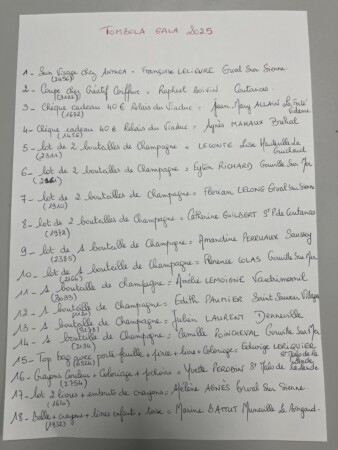 TOMBOLA GALA 2025
1 - Soin Visage chez ANTHEA - Françoise LELIEVRE Orval Sur Sienne
(1456)
2 - Coupe chez Créatif Coiffure = Raphaël BOIVIN Coutances
3 - Chèque cadeau 40 € Relais du Viaduc = Jean Mary ALLAIN La Ferté
(1672)
4 - Chèque cadeau 40 € Relais du Viaduc = Agnès MAHAUX Bréhal
(1456)
5 - lot de 2 bouteilles de Champagne = LECONTE Lise Hauteville la Guichard
(2311)
6 - lot de 2 bouteilles de Champagne = RICHARD Gouville Sur Mer
7 - lot de 2 bouteilles de Champagne = Florian LELONG Orval sur Sienne
(1910)
8 - lot de 2 bouteilles de Champagne = Catherine GUILBERT St P. de Coutances
(1972)
9 - lot de 1 bouteille de Champagne = Amandine PERRUAUX Saussey
(2385)
10 - lot de 1 bouteille de Champagne = Florence COLAS Gouville Sur Mer
11 - 1 bouteille de champagne = Amélie LEMOIGNE Vaudrimesnil
(2033)
12 - 1 bouteille de Champagne = Edith PAUMIER Saint Sauveur Villages
13 - 1 bouteille de Champagne = Julien LAURENT Denneville
14 - 1 bouteille de Champagne = Camille POINDEVAL Gouville Sur Mer
(2134)
15 - Top bag avec porte feuille + livre + Coloriage = Edwige LERIQUIER
St Malo de la Lande
16 - Crayons Couleur + Coloriage + pochons = Yvette PERODIN St Malo de la Lande
(2754)
17 - lot 2 livres + embouts de crayons = Hélène AGNÈS Orval Sur Sienne
(1610)
18 - + crayons + livres enfants + = Marine BATTUT Muneville le Bingard
(1932)